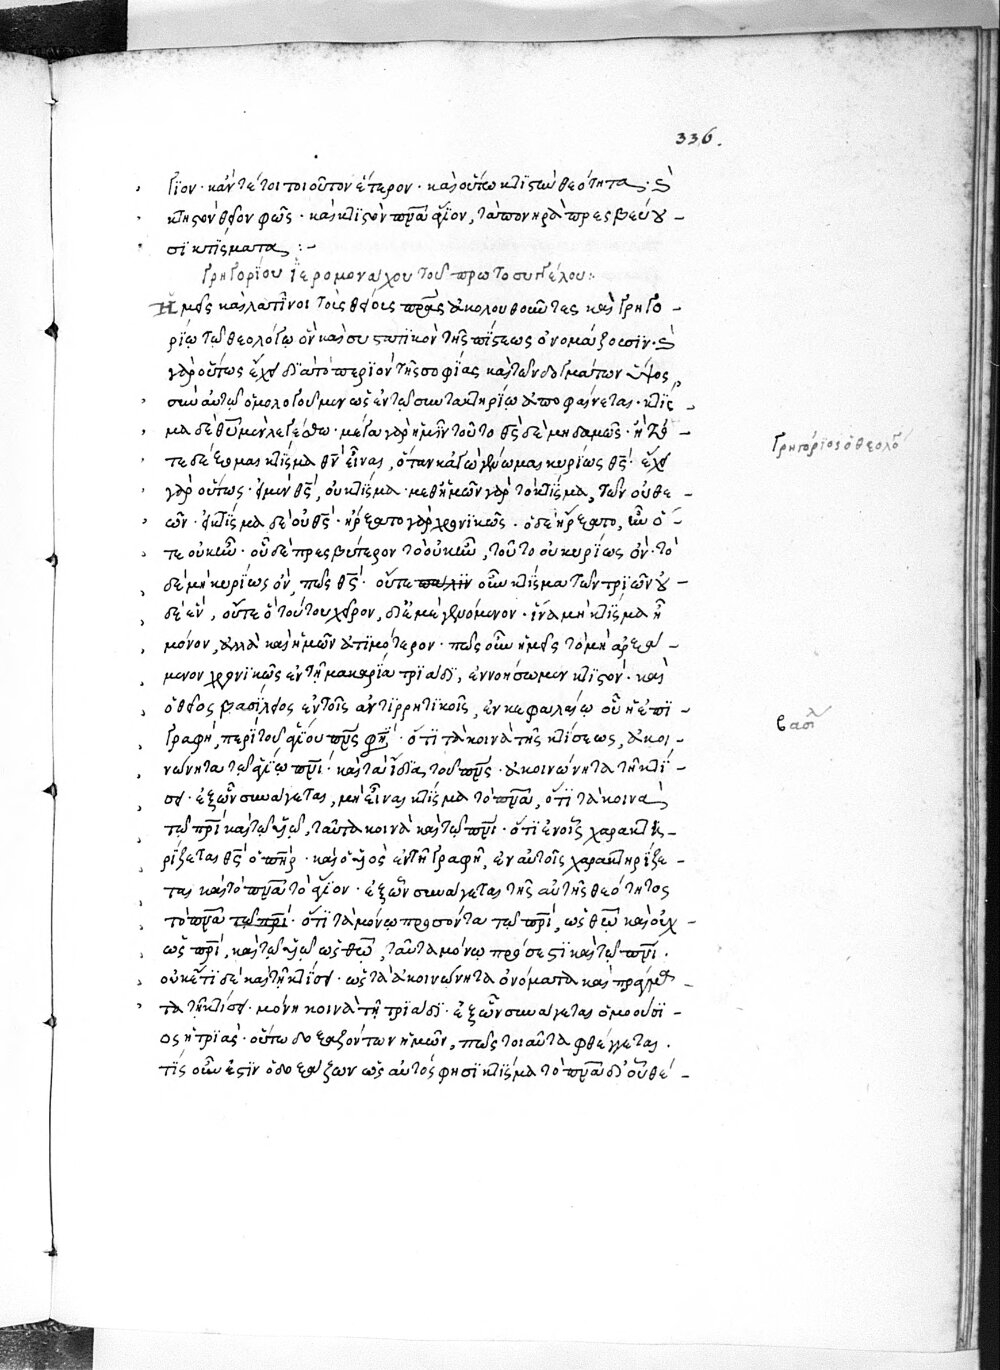 336.
γῖον· κἄν τε τοιοῦτον ἕτερον· καὶ οὕτω κτιστὴν θεότητα· καὶ
κτιστὸν θεῖον φῶς· καὶ κτιστὸν πνᾶ ἅγιον, τὰ πονηρὰ πρεσβεύου-
σι κτίσματα :-
Γρηγορίου ἱερομονάχου τοῦ πρωτοσυγγέλου:
Ἡμεῖς καὶ λατῖνοι τοῖς θείοις πρᾶσς ἀκολουθοῦντες καὶ Γρηγο-
ρίῳ τῷ θεολόγῳ ὃν καὶ συστατικὸν τῆς πίστεως ὀνομάζουσιν·
γὰρ οὕτως ἔχει διὰ τὸ περιὸν τῆς σοφίας καὶ τῶν δογμάτων ὕψος,
σὺν αὐτῷ ὁμολογοῦμεν ὡς ἐν τῷ συντακτηρίῳ ἀποφαίνεται· κτίς
μα δὲ θῦ μὲν λεγέσθω· μέγα γὰρ ἡμῖν τοῦτο θς δὲ μηδαμῶς· ἢ τό-
τε δέξομαι κτίσμα θν εἶναι, ὅταν κἀγὼ γένωμαι κυρίως θς· ἔχει
γὰρ οὕτως· εἰ μὲν θς, οὐ κτίσμα· μεθ' ἡμῶν γὰρ τὸ κτίσμα, τῶν οὐ θε-
ῶν· εἰ κτίσμα δὲ οὐ θς· ἤρξατο γὰρ χρονικῶς· ὃ δὲ ἤρξατο, ἦν ὅ-
τε οὐκ ἦν· οὗ δὲ πρεσβύτερον τὸ οὐκ ἦν, τοῦτο οὐ κυρίως ὄν· τὸ
δὲ μὴ κυρίως ὄν, πῶς θς· οὔτε πάλιν οὖν κτίσμα τῶν τριῶν οὐ-
δὲ ἕν, οὔτε ὃ τούτου χεῖρον, δι' ἐμὲ γενόμενον· ἵνα μὴ κτίσμα ᾖ
μόνον, ἀλλὰ καὶ ἡμῶν ἀτιμότερον· πῶς οὖν ἡμεῖς τὸ μὴ ἀρξά-
μενον χρονικῶς ἐν τῇ μακαρίᾳ τριάδι, ἐννοήσωμεν κτιστόν· καὶ
ὁ θεῖος βασίλειος ἐν τοῖς ἀντιρρητικοῖς, ἐν κεφαλαίῳ οὗ ἡ ἐπι-
γραφή, περὶ τοῦ ἁγίου πνς φησί· ὅτι τὰ κοινὰ τῆς κτίσεως, ἀκοι-
νώνητα τῷ ἁγίῳ πνι· καὶ τὰ ἴδια τοῦ πνς· ἀκοινώνητα τῇ κτί-
σει· ἐξ ὧν συνάγεται, μὴ εἶναι κτίσμα τὸ πνᾶ, ὅτι τὰ κοινὰ
τῷ πρι καὶ τῷ υἱῷ, ταῦτα κοινὰ καὶ τῷ πνι· ὅτι ἐν οἷς χαρακτη-
ρίζεται θς ὁ πηρ· καὶ ὁ υἱὸς ἐν τῇ γραφῇ, ἐν αὐτοῖς χαρακτηρίζε-
ται καὶ τὸ πνᾶ τὸ ἅγιον· ἐξ ὧν συνάγεται τῆς αὐτῆς θεότητος
τὸ πνᾶ τῷ πρι· ὅτι τὰ μόνῳ προσόντα τῷ πρι, ὡς θῶ καὶ οὐχ
ὡς πρι, καὶ τῷ υἱῷ ὡς θῶ, ταῦτα μόνῳ πρόσεστι καὶ τῷ πνι.
οὐκέτι δὲ καὶ τῇ κτίσει· ὥστε τὰ ἀκοινώνητα ὀνόματα καὶ πράγματα
τὰ τῇ κτίσει· μόνῃ κοινὰ τῇ τριάδι· ἐξ ὧν συνάγεται ὁμοούσι-
ος ἡ τριάς· οὕτω δοξαζόντων ἡμῶν, πῶς τοιαῦτα φθέγγεται.
τίς οὖν ἐστιν ὁ δοξάζων ὡς αὐτός φησι κτίσμα τὸ πνᾶ δι' οὗ θε-
Γρηγόριος ὁ θεολό
βασιλ